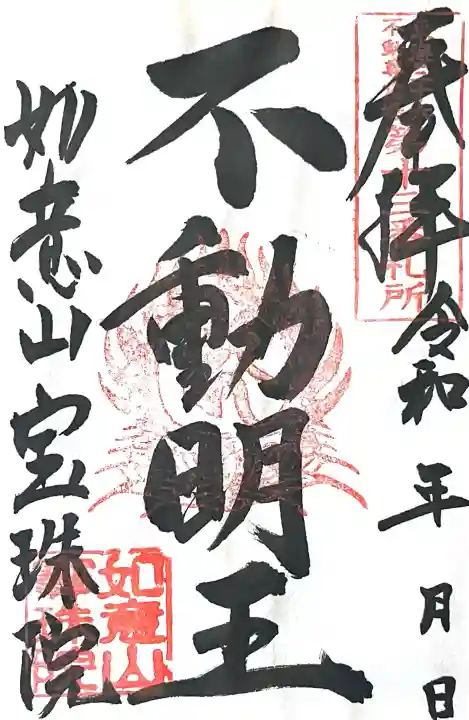 奉拝 令和 年 月 日
十三番札所
不動明王
如意山 宝珠院
如意山
宝珠院